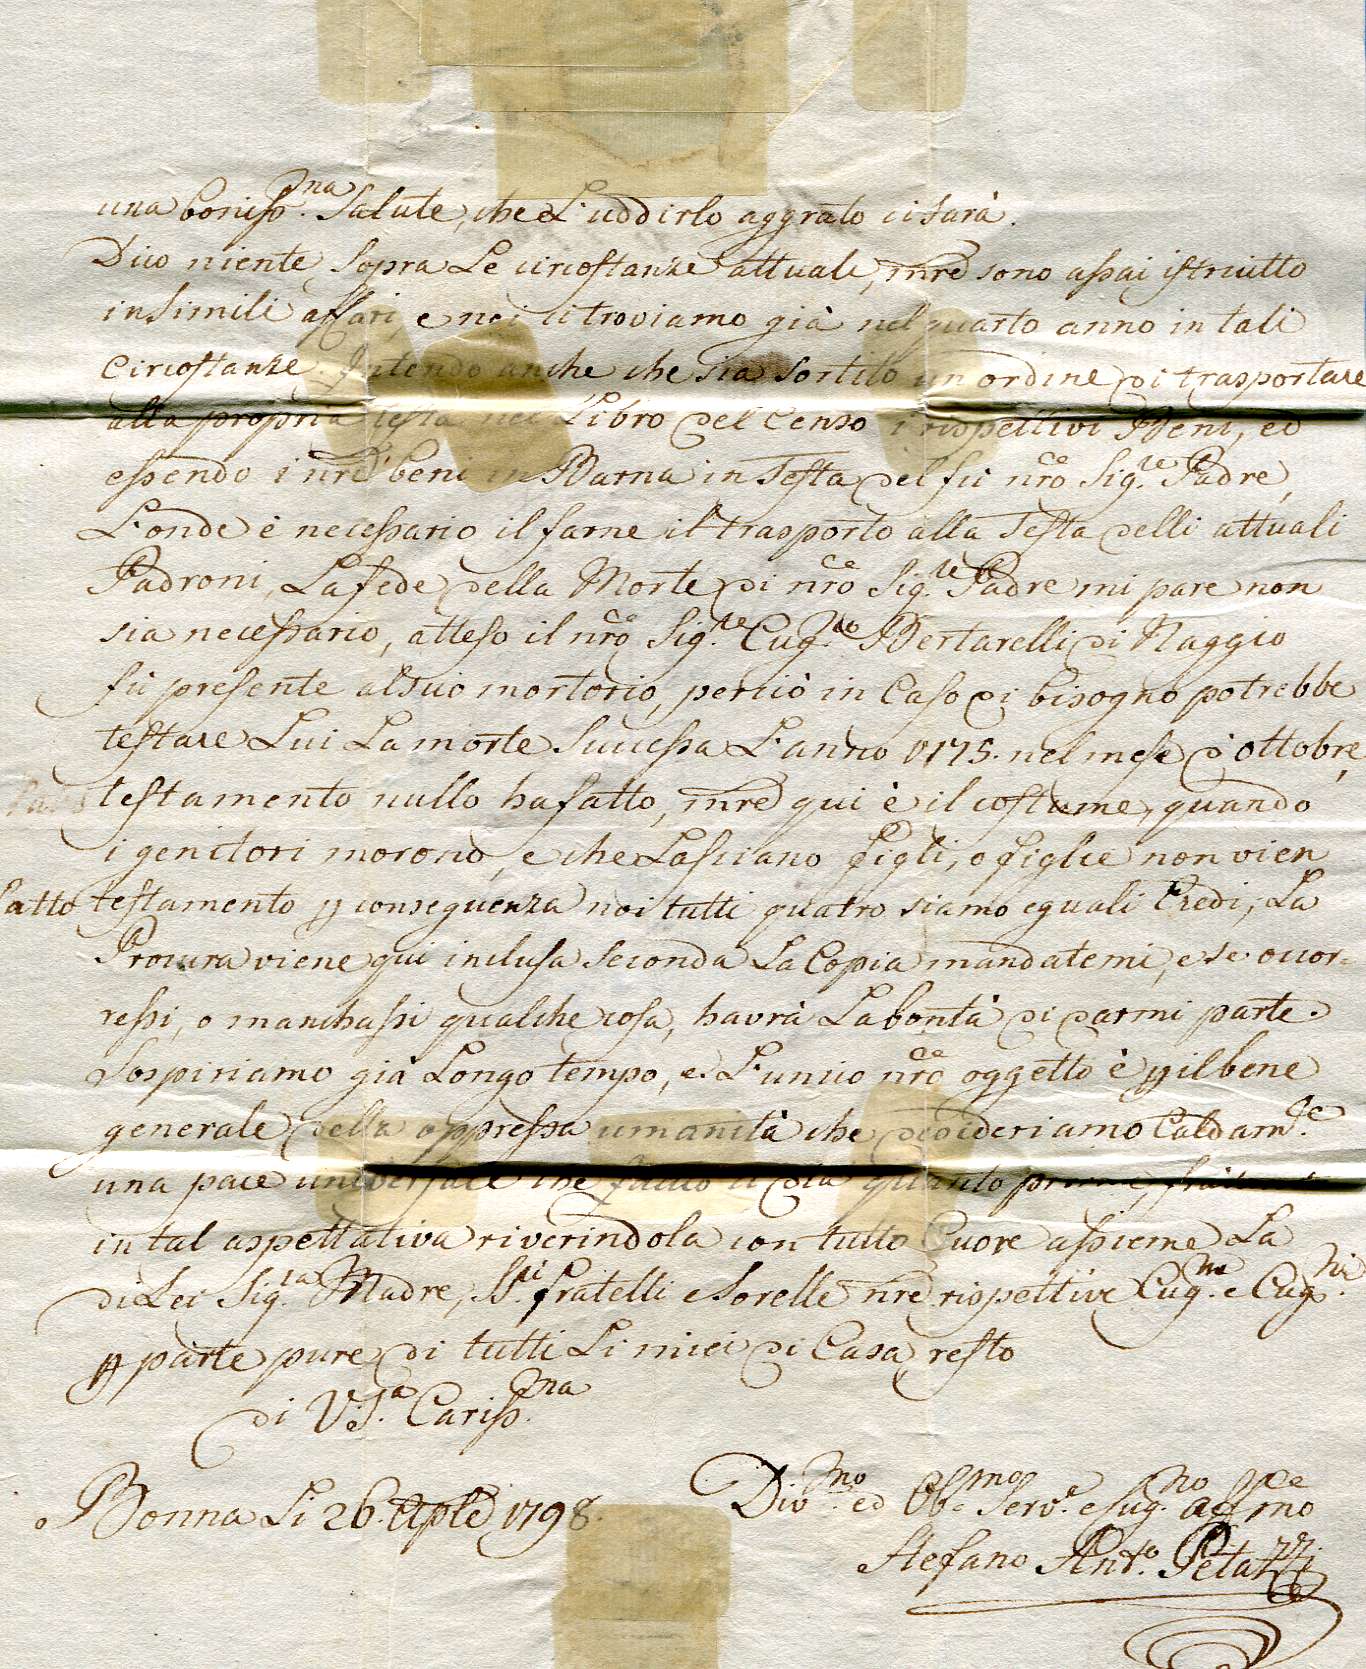 una boniss.na Salute, che L'uddirlo aggrato ci sarà.
Dico niente sopra Le circostanze attuali, mre sono assai istruitto
in simili affari, e noi ci troviamo già nel quarto anno in tali
Circostanze. Intendo anche che sia sortito un ordine di trasportare
alla propria testa nel Libro del Censo i rispettivi Beni, ed
essendo i nri beni in Barna in Testa del fù nro Sig.re Padre,
L'onde è necessario il farne il trasporto alla Testa delli attuali
Padroni, La fede della Morte di nro Sig.re Padre mi pare non
sia necessario, atteso il nro Sig.re Cug.no Bertarelli di Naggio
fù presente al suo mortorio, perciò in Caso di bisogno potrebbe
testare Lui La morte Successa L'anno 1775. nel mese d'ottobre,
testamento nullo ha fatto, mre qui è il costume, quando
i genitori morono, e che Lasciano figli, o figlie non vien
fatto testamento p conseguenza noi tutti quatro siamo eguali Eredi, La
Procura viene qui inclusa seconda La Copia mandatemi, e se occor=
ressi, o manchassi qualche cosa, havrà La bontà di darmi parte.
Sospiriamo già Longo tempo, e L'unico nro oggetto è p il bene
generale della oppressa umanità che desideriamo Caldam.te
una pace universale che faccia Iddio quanto prima,
in tal aspettativa riverindola con tutto Cuore assieme La
di Lei Sig.ra Madre, S.ri fratelli e Sorelle nre rispettive Cug.ne e Cug.ni
p parte pure di tutti Li miei di Casa resto
di V.S.a Cariss.ma
Bonna Li 26. Aple 1798.
Div.mo ed Ob.mo Serv.e e Cug.no affmo
Stefano Ant.o Petazzi